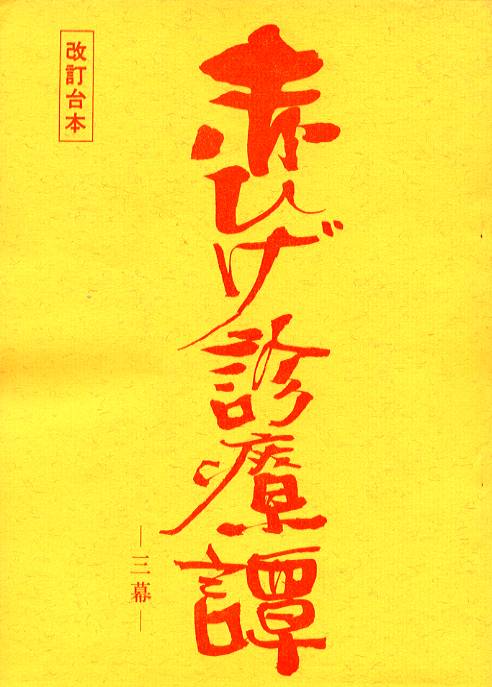 改訂台本
赤ひげ診療譚
―三幕―